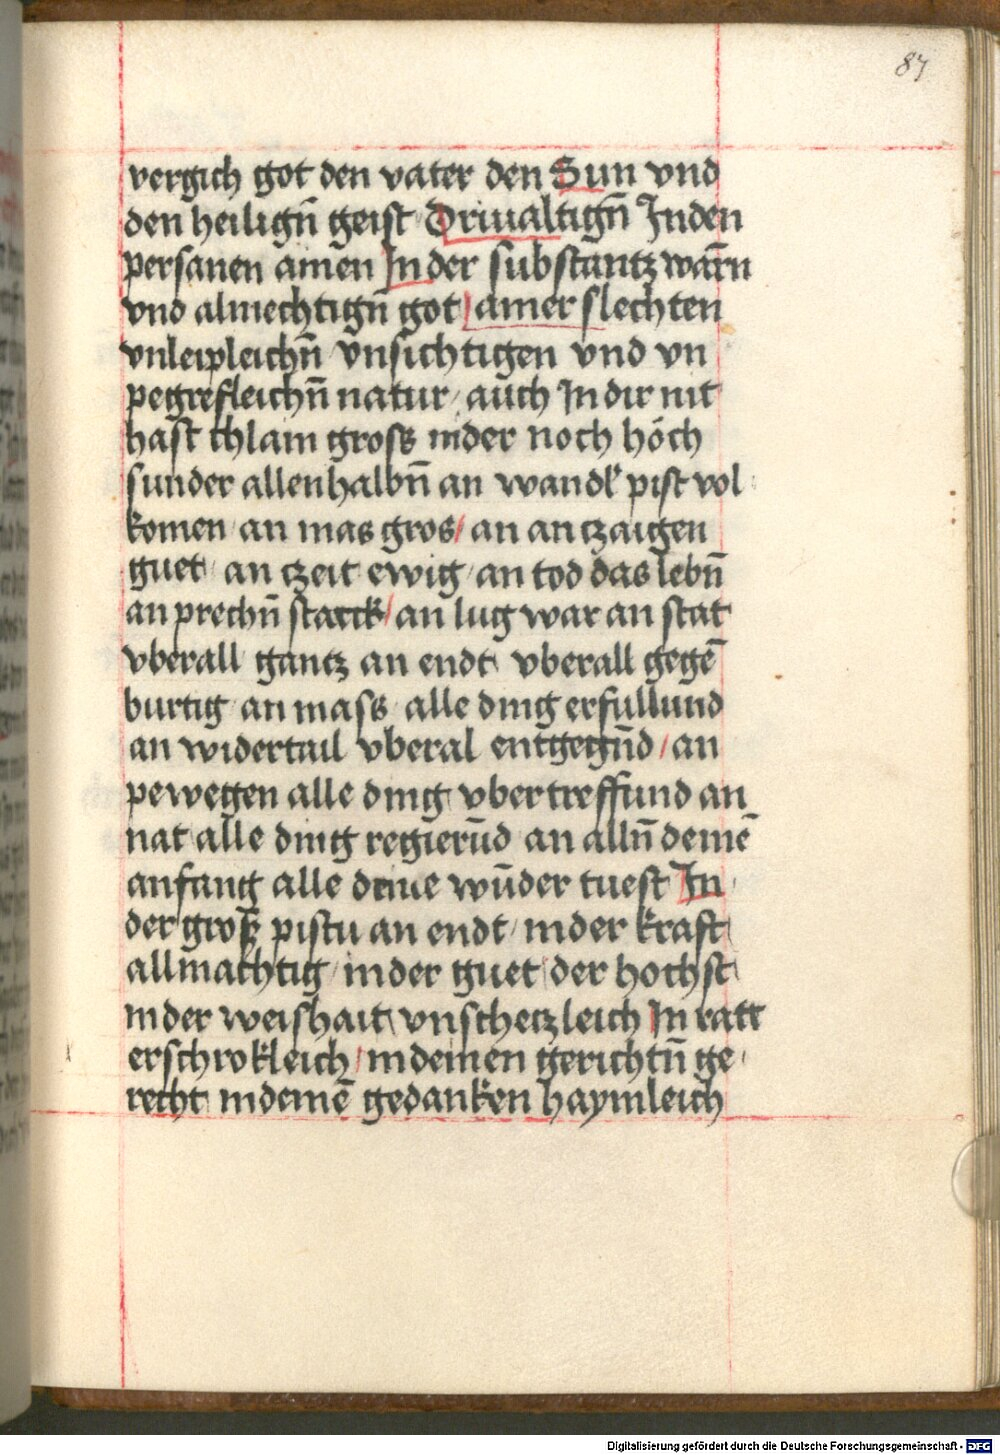 87
vergich got den vater den Sun vnd
den heiligñ geist Driualtigñ Inden
persanen amen In der substantz warñ
vnd almechtigñ got / ainer slechten
vnleipleichñ vnsichtigen vnd vn
pegrefleichñ natur / auch In dir nit
hast chlain gross nider noch höch
sunder allenhalbñ an wandl pist vol
komen / an mas gros / an antzaigen
guet / an tzeit ewig / an tod das lebñ
an prechñ starck / an lug war an stat
vberall gantz an endt vberall gegē
burtig / an mass / alle ding erfullund
an widertail vberal entgegūd / an
pewegen alle ding vbertreffund an
nat alle ding regierūd an allñ deinē
anfang alle deine wūder tuest In
der gross pistu an endt / in der kraft
allmachtig / in der guet der hochst
in der weishait vnschetzleich In ratt
erschrokleich / in deinen gerichtñ ge
recht in deinē gedanken haymleich
Digitalisierung gefördert durch die Deutsche Forschungsgemeinschaft - DFG